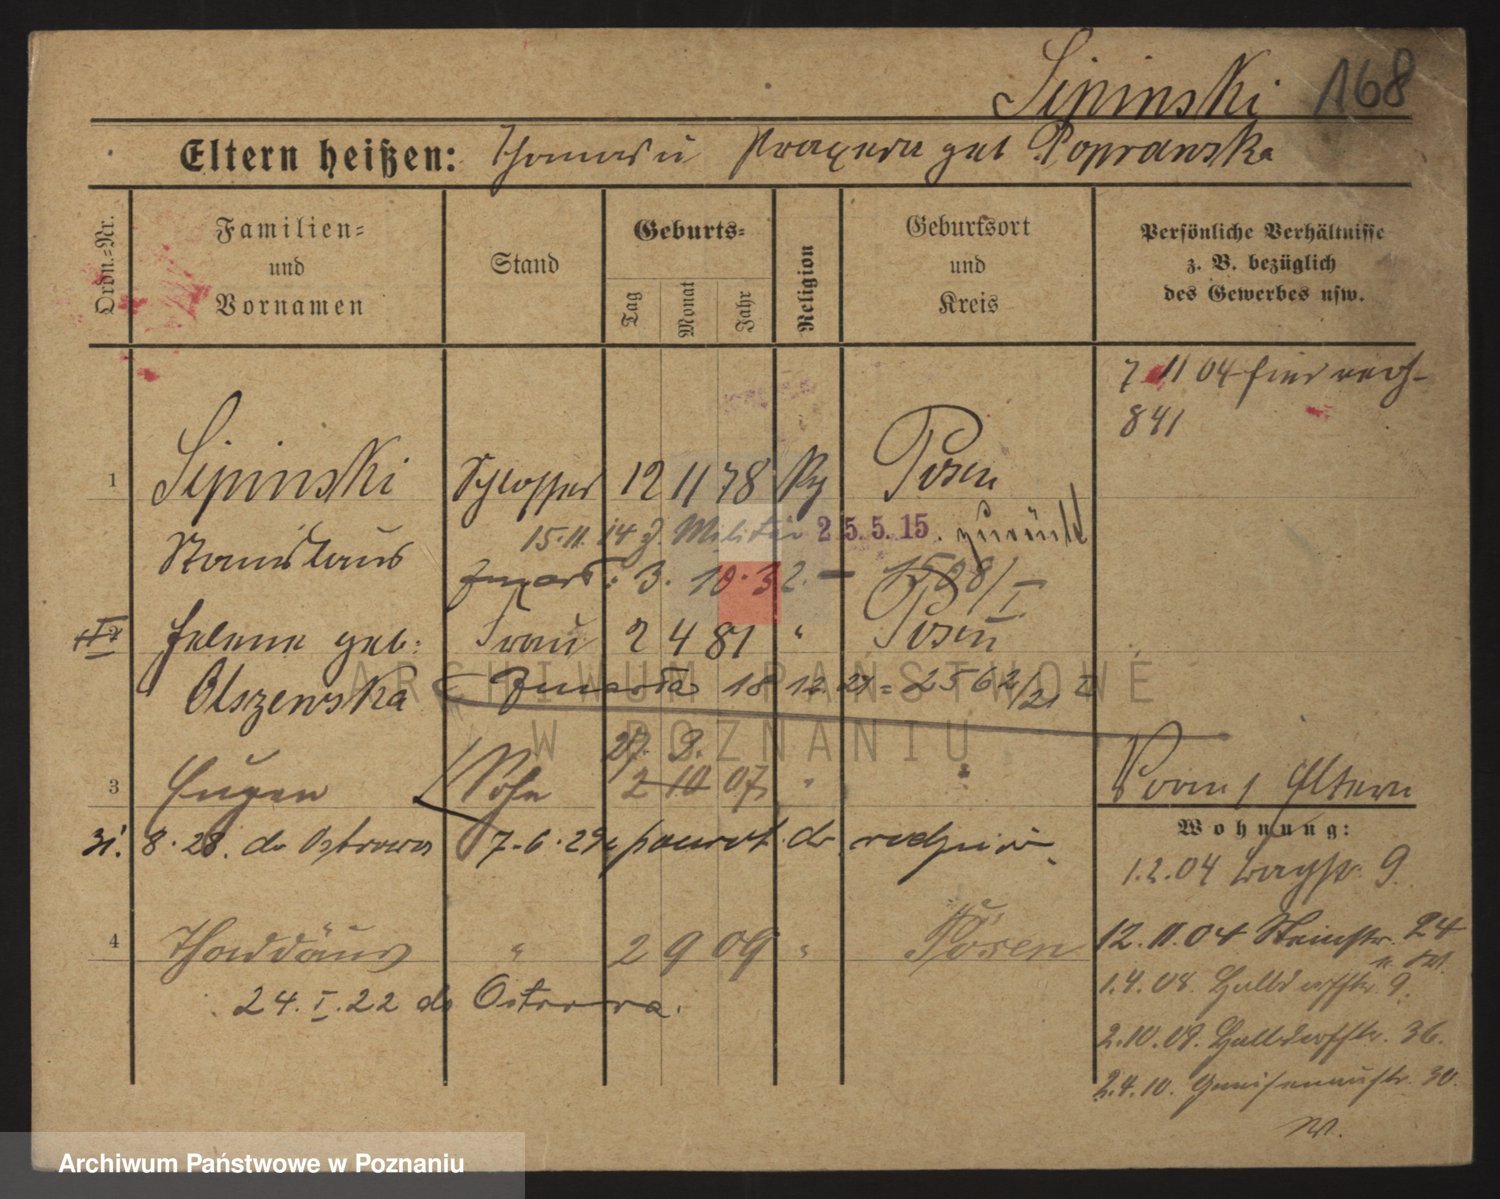 Lipinski 168
Eltern heißen: Thomas u Praxeda geb Poprawska
Ordn.-Nr.
Familien-
und
Vornamen
Stand
Geburts-
Tag
Monat
Jahr
Religion
Geburtsort
und
Kreis
Persönliche Verhältnisse
z. B. bezüglich
des Gewerbes usw.
7 11 04
841
1 Lipinski Schlosser 12 11 78 Posen
15.11.14 z. Militär 25.5.15. zurück
Stanislaus
zmarł: 3. 10. 32. – 1508/I
Helene geb: Frau 2 4 81 " Posen
Olszewska zmarła 18 12 21 = 2562/21
27. 9.
3 Eugen Sohn 2 10 07 " "
Eltern
Wohnung:
31. 8. 28. do Ostrowa 7.6.29 powrót do rodziców.
1.2.04 9.
4 Thaddäus " 2 9 09 " Posen
12.11.04 Steinstr. 24
24. I. 22 do Ostrowa.
1.4.08. Halbdorfstr. 9.
2.10.09. Halbdorfstr. 36.
2.4.10. Gneisenaustr. 30.
W.
ARCHIWUM PAŃSTWOWE
W POZNANIU
Archiwum Państwowe w Poznaniu